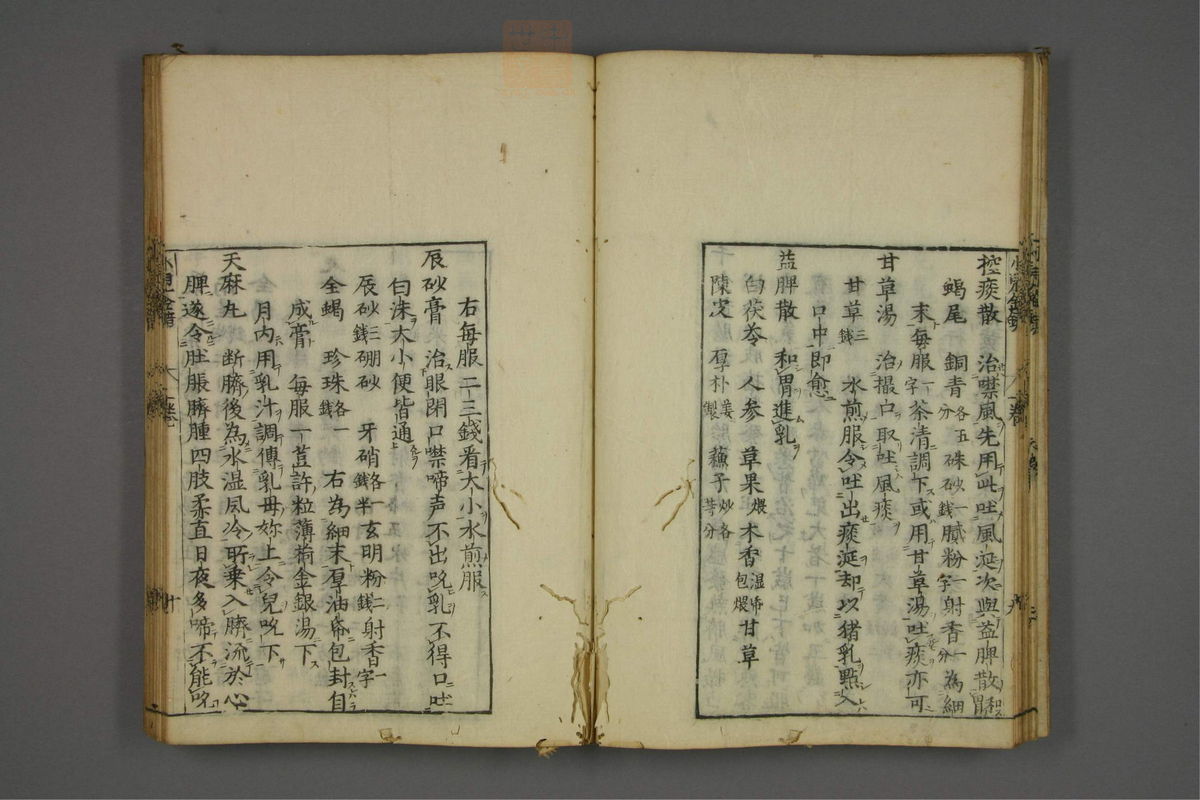 控痰散 治噤風先用此吐風涎次與益脾散和胃
蝎尾 銅青各五分 硃砂一錢 膩粉一字 射香一分 為細
末每服一字茶清調下或用甘草湯吐痰亦可
甘草湯 治撮口取吐風痰
甘草三錢 水煎服令吐出痰涎却以猪乳點入
口中即愈
益脾散 和胃進乳
白茯苓 人参 草果煨 木香湿帋包煨 甘草
陳皮 厚朴姜製 蘓子炒各等分
右每服二三錢看大小水煎服
辰砂膏 治眼閉口噤啼声不出吮乳不得口吐
白沫大小便皆通
辰砂三錢 硼砂 牙硝各一錢半 玄明粉二錢 射香一字
全蝎 珍珠各一錢 右為細末厚油帋包封自
成膏 每服一荳許粒薄荷金銀湯下
月内用乳汁調傅乳母妳上令兒吮下
天麻丸 断臍後為水温風冷所乗入臍流於心
脾遂令肚脹臍腫四肢柔直日夜多啼不能吮